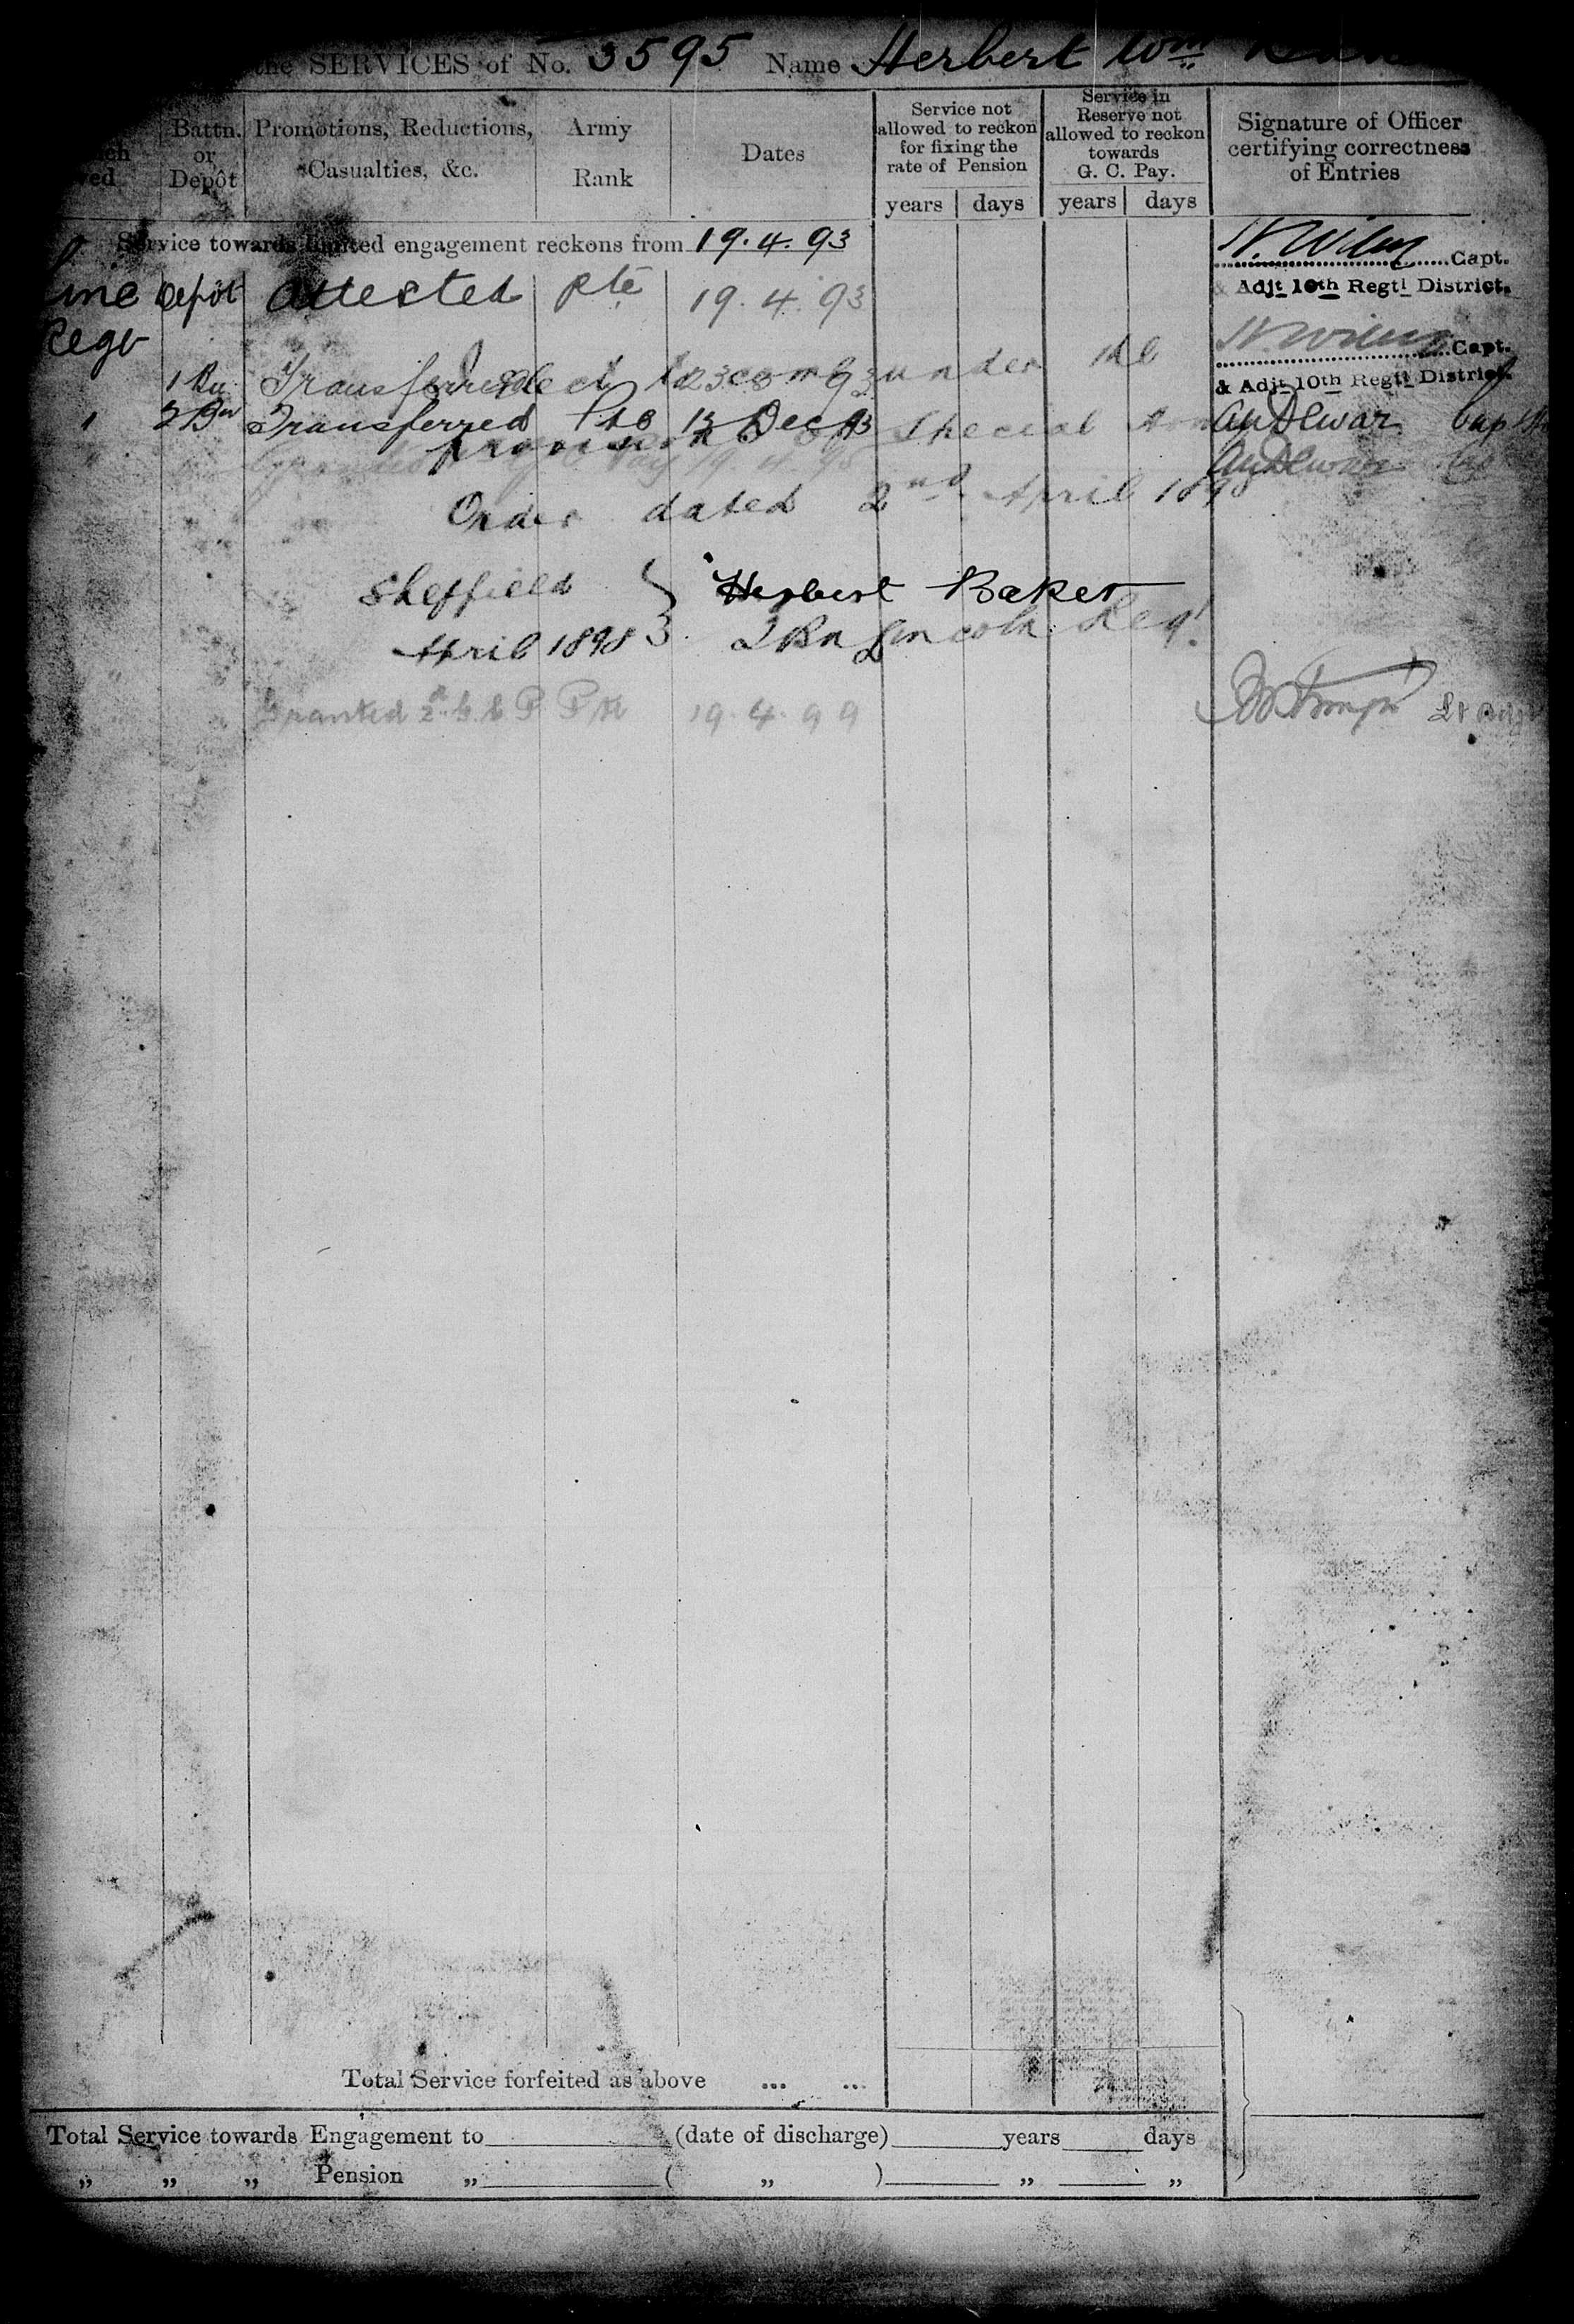 the SERVICES of No. 3595 Name Herbert Wm
Battn. or Depôt
Promotions, Reductions, Casualties, &c.
Army Rank
Dates
Service not allowed to reckon for fixing the rate of Pension
years days
Service in Reserve not allowed to reckon towards G. C. Pay.
years days
Signature of Officer certifying correctness of Entries
Service towards limited engagement reckons from 19.4.93
Capt.
& Adjt 10th Regtl District.
Depôt Attested Pte 19.4.93
Regt
Capt.
& Adjt 10th Regtl District.
1 Bn Transferred
I elect to come under the
2 Bn Transferred Pte 13 Dec 93
provisions of Special Army
19.4.95
Order dated 2nd April 189
Sheffield } Herbert Baker
April 1898 } 2 Bn Lincoln Regt
Granted 2nd G C P Pte 19.4.99
Total Service forfeited as above ... ...
Total Service towards Engagement to (date of discharge) years days
„ „ „ Pension „ ( „ ) „ „